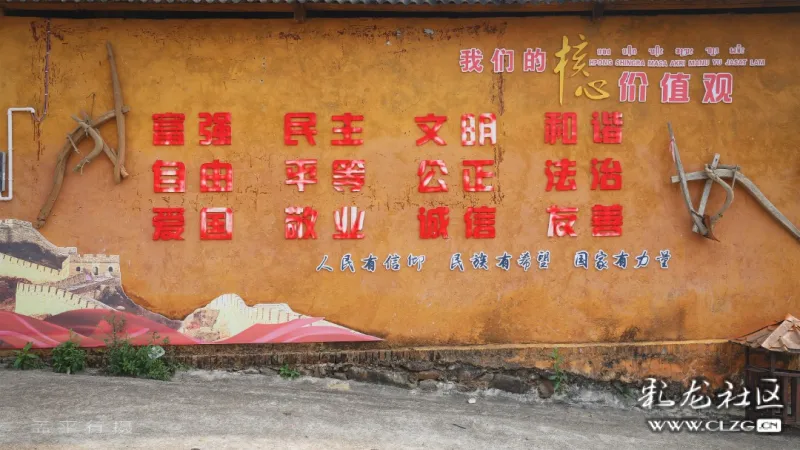 我们的核心价值观
HPONG SHINGRA MASA AHKI MANU YU JABAT LAM
富强 民主 文明 和谐
自由 平等 公正 法治
爱国 敬业 诚信 友善
人民有信仰 民族有希望 国家有力量
彩龙社区
WWW.CLZG.CN